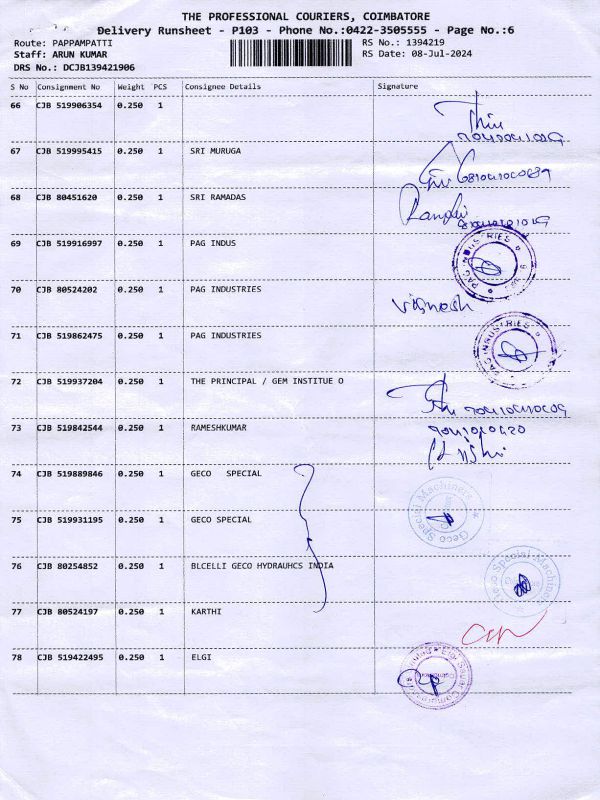 THE PROFESSIONAL COURIERS, COIMBATORE
Delivery Runsheet - P103 - Phone No.:0422-3505555 - Page No.:6
Route: PAPPAMPATTI
RS No.: 1394219
Staff: ARUN KUMAR
RS Date: 08-Jul-2024
DRS No.: DCJB139421906
S No Consignment No Weight PCS Consignee Details Signature
66 CJB 519906354 0.250 1
67 CJB 519995415 0.250 1 SRI MURUGA
68 CJB 80451620 0.250 1 SRI RAMADAS
69 CJB 519916997 0.250 1 PAG INDUS
PAG INDUSTRIES
70 CJB 80524202 0.250 1 PAG INDUSTRIES
Vignesh
71 CJB 519862475 0.250 1 PAG INDUSTRIES
PAG INDUSTRIES
72 CJB 519937204 0.250 1 THE PRINCIPAL / GEM INSTITUE O
73 CJB 519842544 0.250 1 RAMESHKUMAR
74 CJB 519889846 0.250 1 GECO SPECIAL
Geco Special Machines
75 CJB 519931195 0.250 1 GECO SPECIAL
76 CJB 80254852 0.250 1 BLCELLI GECO HYDRAUHCS INDIA
Geco Special Machines
77 CJB 80524197 0.250 1 KARTHI
78 CJB 519422495 0.250 1 ELGI